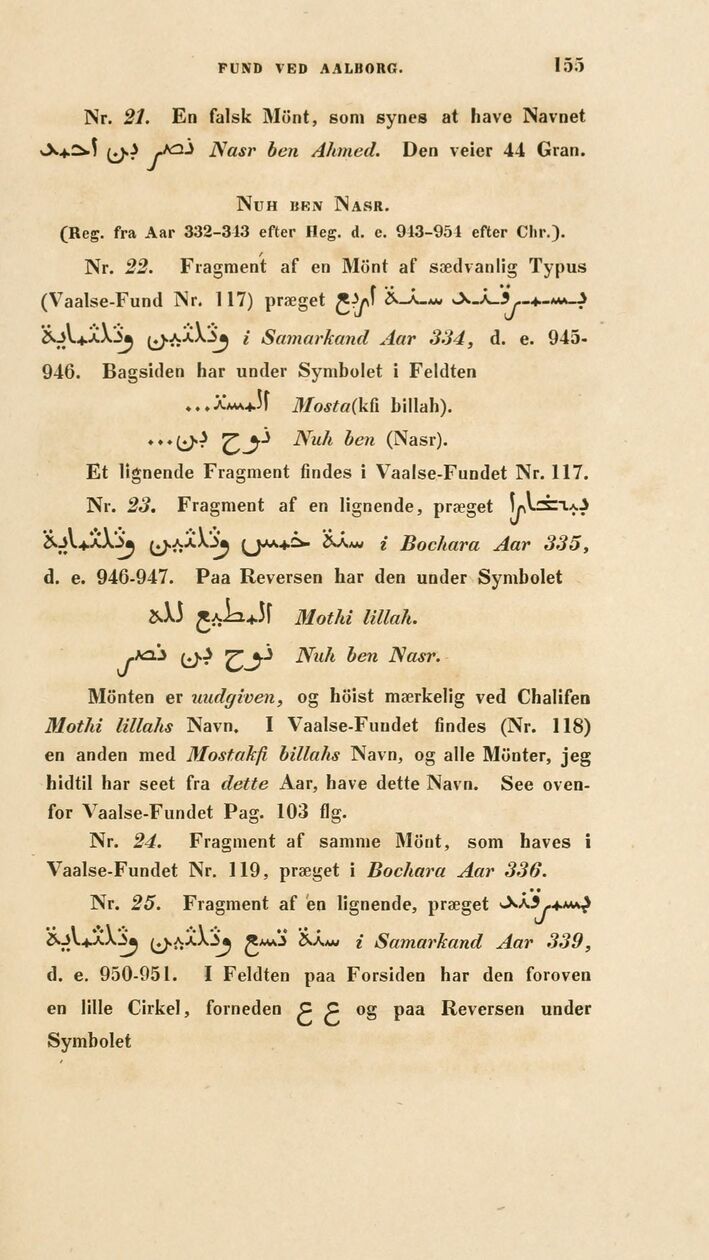 FUND VED AALBORG. 155
Nr. 21. En falsk Mönt, som synes at have Navnet
نصر بن احمد Nasr ben Ahmed. Den veier 44 Gran.
NUH BEN NASR.
(Reg. fra Aar 332-343 efter Heg. d. e. 943-954 efter Chr.).
Nr. 22. Fragment af en Mönt af sædvanlig Typus
(Vaalse-Fund Nr. 117) præget بسمرقند سنة اربع
وثلثين وثلثماية i Samarkand Aar 334, d. e. 945-
946. Bagsiden har under Symbolet i Feldten
المستـ... Mosta(kfi billah).
نوح بن... Nuh ben (Nasr).
Et lignende Fragment findes i Vaalse-Fundet Nr. 117.
Nr. 23. Fragment af en lignende, præget ببخارا
سنة خمس وثلثين وثلثماية i Bochara Aar 335,
d. e. 946-947. Paa Reversen har den under Symbolet
المطيع لله Mothi lillah.
نوح بن نصر Nuh ben Nasr.
Mönten er uudgiven, og höist mærkelig ved Chalifen
Mothi lillahs Navn. I Vaalse-Fundet findes (Nr. 118)
en anden med Mostakfi billahs Navn, og alle Mönter, jeg
hidtil har seet fra dette Aar, have dette Navn. See oven-
for Vaalse-Fundet Pag. 103 flg.
Nr. 24. Fragment af samme Mönt, som haves i
Vaalse-Fundet Nr. 119, præget i Bochara Aar 336.
Nr. 25. Fragment af en lignende, præget بسمرقند
سنة تسع وثلثين وثلثماية i Samarkand Aar 339,
d. e. 950-951. I Feldten paa Forsiden har den foroven
en lille Cirkel, forneden ع ع og paa Reversen under
Symbolet